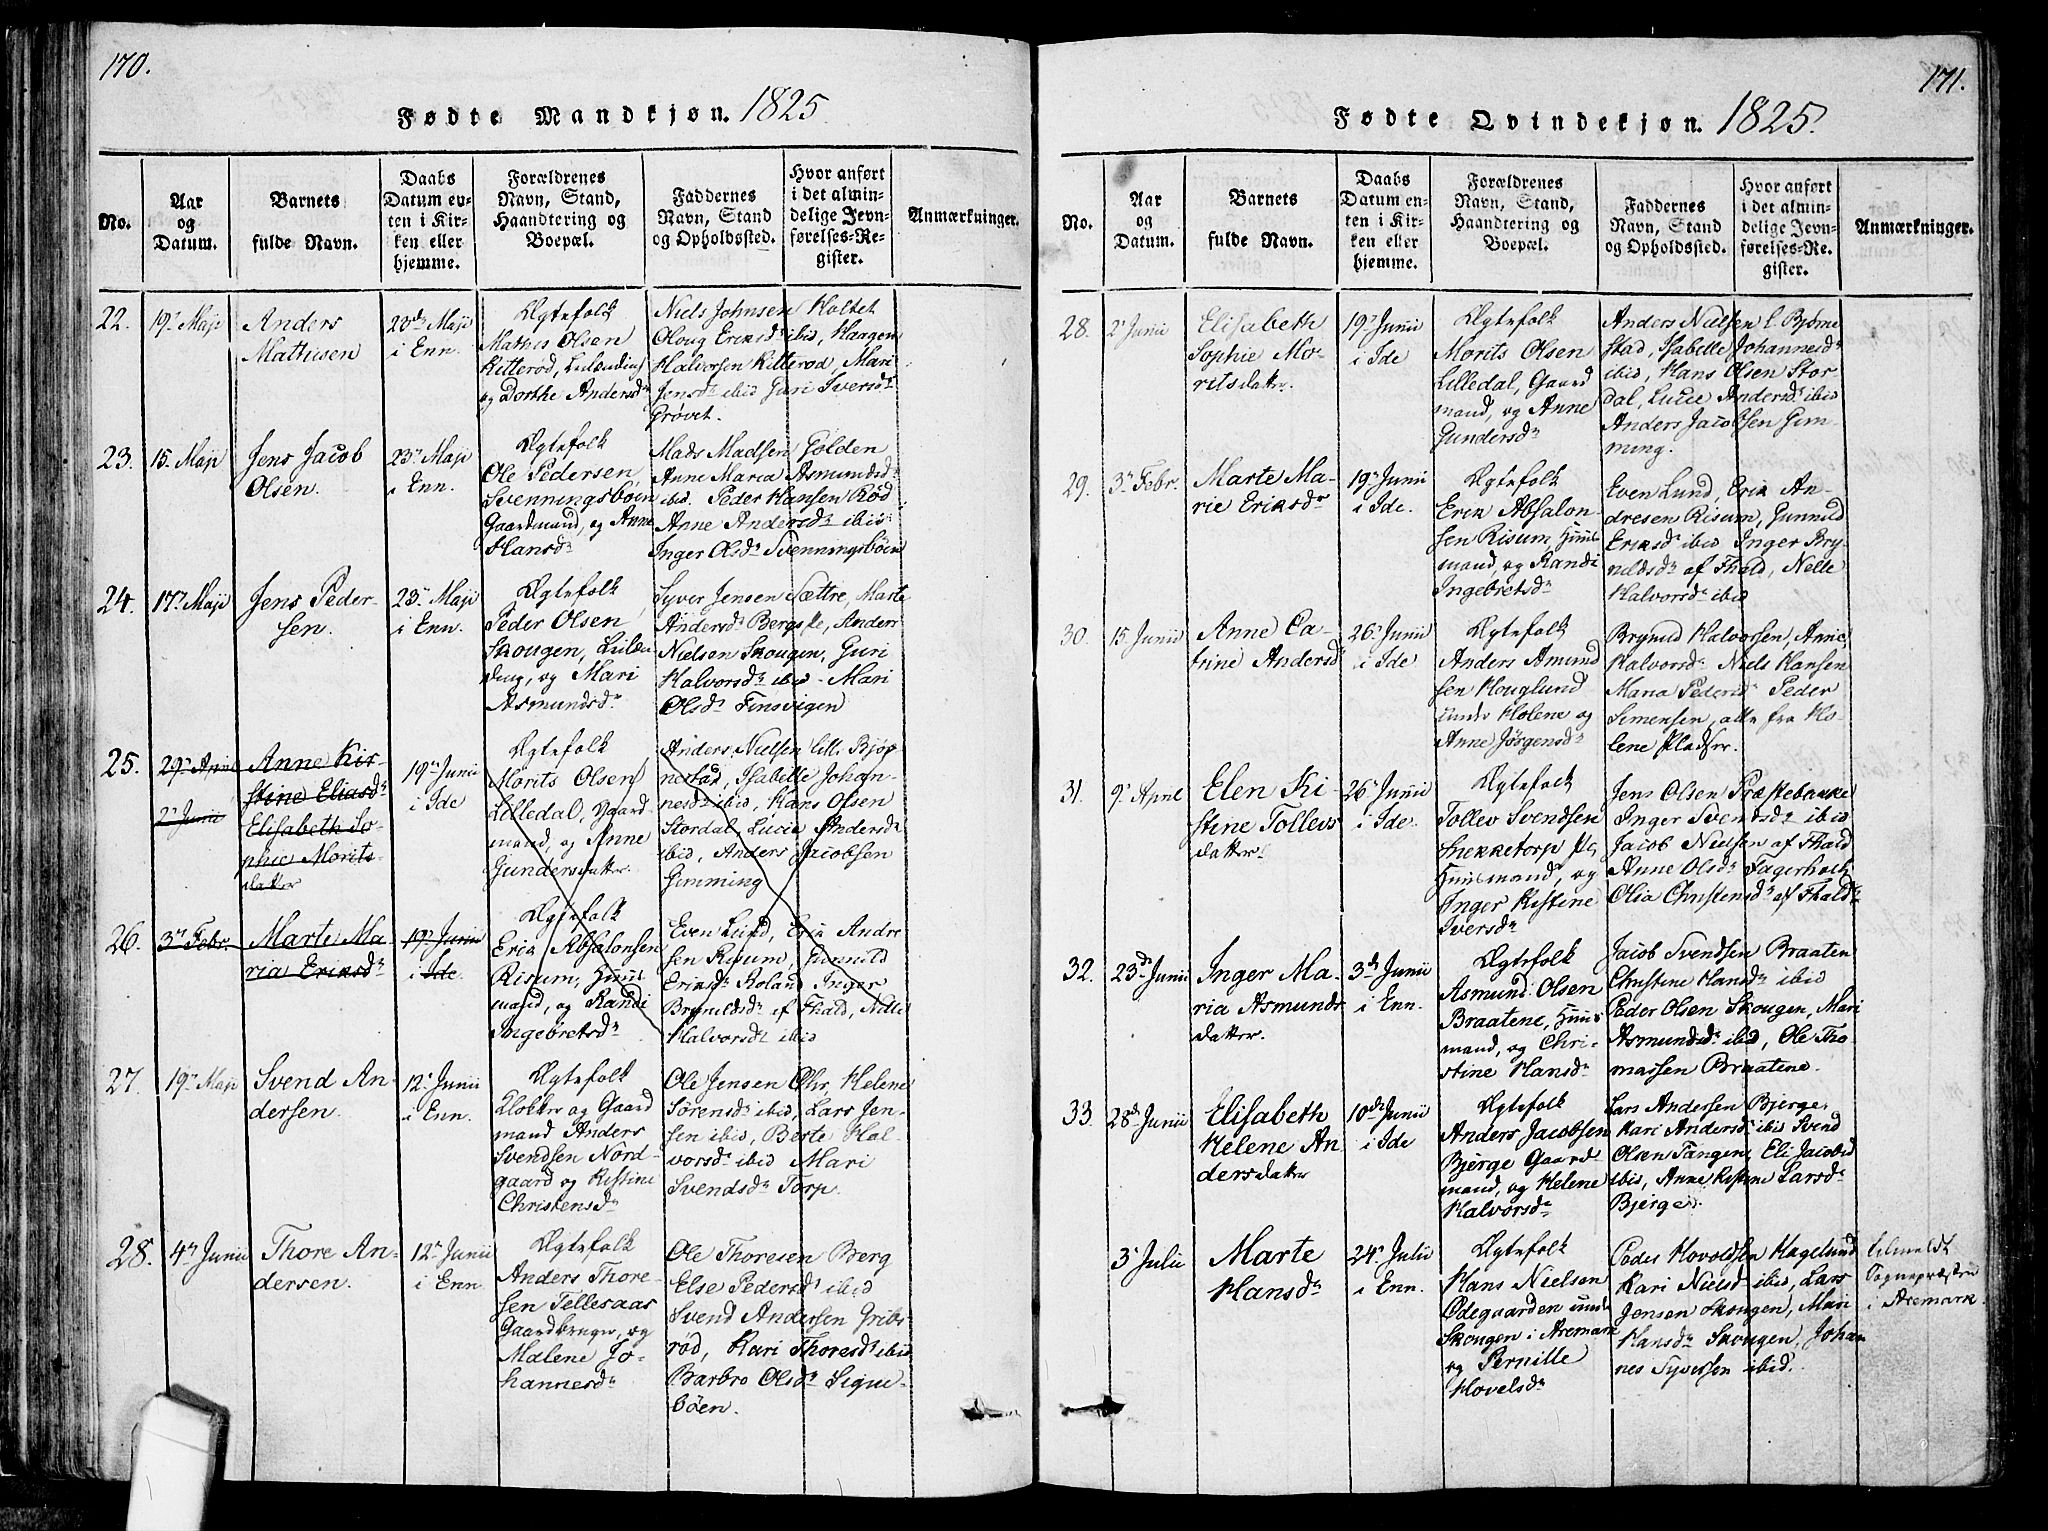 170.
Fødte Mandkjøn. 1825
No.
Aar
og
Datum.
Barnets
fulde Navn.
Daabs
Datum en-
ten i Kir-
ken eller
hjemme.
Forældrenes
Navn, Stand,
Haandtering og
Boepæl.
Faddernes
Navn, Stand
og Opholdssted.
Hvor anført
i det almin-
delige Jevn-
førelses-Re-
gister.
Anmærkninger.
22.
19. Maji
Anders
Mathisen
23d Maji
i Enn.
Ægtefolk
Mathis Olsen
Kitterød, Leilænding
og Dorthe Andersd
Niels Johnsen Holtet
Oloug Eriksd ibid, Haagen
Halvorsen Kitterød, Mari
Jensd ibid Guri Iversd
Grøvet.
23.
15. Maji
Jens Jacob
Olsen.
23 Maji
i Enn.
Ægtefolk
Ole Pedersen,
Svenningsbøen
Gaardmand, og Anne
Hansd
Mads Madsen Folden
Anne Maria Asmundsd
ibid. Peder Hansen Rød
Anne Andersd ibid
Inger Olsd Svenningsbøen
24.
17 Maji
Jens Peder-
sen.
23 Maji
i Enn.
Ægtefolk
Peder Olsen
Skougen, Leilæn
ding, og Mari
Asmundsd
Syver Jensen Sættre, Marte
Andersd Bergske, Anders
Nielsen Skougen, Guri
Halvorsd ibid - Mari
Olsd Finsvigen
25.
29 April
2 Junii
Anne Kir-
stine Eliasd
Elisabeth So-
phie Morits-
datter
19 Junii
i Ide
Ægtefolk
Morits Olsen
Lilledal, Gaard-
mand, og Anne
Gundersdatter.
Anders Nielsen lill. Bjør
nestad, Isabelle Johan-
nesd ibid, Hans Olsen
Stordal, Lucie Andersd
ibid, Anders Jacobsen
Gimming
26.
3 Febr.
Marte Ma-
ria Eriksd
19 Junii
i Ide
Ægtefolk
Erik Absalonsen
Risum, Huus
mand, og Randi
Ingebretsd
Even Lund, Erik Andre
sen Risum, Gunnild
Eriksd Roland Inger
Brynildsd af Fhald, Nelle
Halvorsd ibid
27.
19 Maji
Svend An-
dersen.
12 Junii
i Enn.
Ægtefolk
Klokker og Gaard
mand Anders
Svendsen Nord-
gaard og Kistine
Christensd
Ole Jensen Ohr Helene
Sørensd ibid, Lars Jen-
sen ibid, Berte Hal-
vorsd ibid Mari
Svendsd Torp.
28.
4 Junii
Thore An-
dersen.
12 Junii
i Enn.
Ægtefolk
Anders Thore-
sen Tellesaas
Gaardbruger, og
Malene Jo-
hannesd
Ole Thoresen Berg
Else Pedersd ibid
Svend Andersen Gribs-
rød, Kari Thoresd ibid
Barbro Olsd Sigue-
bøen.
171.
Fødte Qvindekjøn. 1825.
No.
Aar
og
Datum.
Barnets
fulde Navn.
Daabs
Datum en-
ten i Kir-
ken eller
hjemme.
Forældrenes
Navn, Stand,
Haandtering og
Boepæl.
Faddernes
Navn, Stand
og Opholdssted.
Hvor anført
i det almin-
delige Jevn-
førelses-Re-
gister.
Anmærkninger.
28.
2 Junii
Elisabeth
Sophie Mo-
ritsdatter.
19 Junii
i Ide
Ægtefolk
Morits Olsen
Lilledal, Gaard
mand, og Anne
Gundersd
Anders Nielsen l. Bjørne
stad, Isabelle Johannesd
ibid, Hans Olsen Stor
dal, Lucie Andersd ibid
Anders Jacobsen Gim-
ming.
29.
3 Febr.
Marte Ma-
rie Eriksd
19 Junii
i Ide.
Ægtefolk
Erik Absalon-
sen Risum Huus
mand, og Randi
Ingebretsd
Even Lund, Erik An-
dresen Risum, Gunnild
Eriksd ibid Inger Bry-
nildsd af Fhald, Nelle
Halvorsd ibid
30.
15 Junii
Anne Ca-
trine Andersd
26 Junii
i Ide
Ægtefolk
Anders Amund
sen Houglund
under Holene og
Anne Jørgensd
Brynild Halvorsen, Anne
Halvorsd Niels Hansen
Maria Pedersd Peder
Simensen, alle fra Ho-
lene Pladser.
31.
9 April
Elen Ki-
stine Tollevs
datter.
26 Junii
i Ide
Ægtefolk
Tollev Svendsen
Snekketorp
Huusmand, og
Inger Kistine
Iversd
Jens Olsen Præstebakke
Inger Svendsd ibid
Jacob Nielsen af Fhald
Anne Olsd Fagerholt
Olia Christensd af Fhald
32.
23d Junii
Inger Ma-
ria Asmunds
datter.
3d Junii
i Enn.
Ægtefolk
Asmund Olsen
Braatene, Huus
mand, og Chri-
stine Hansd
Jacob Svendsen Braaten
Christine Hansd ibid
Peder Olsen Skougen, Mari
Asmundsd ibid, Ole Tho
massen Braatene.
33.
28d Junii
Elisabeth
Helene An
dersdatter
10d Junii
i Ide
Ægtefolk
Anders Jacobsen
Bjerge Gaard-
mand, og Helene
Halvorsd
Lars Andersen Bjerge,
Kari Andersd ibid Svend
Olsen Tangen, Eli Jacobsd
ibid, Anne Kistine Larsd
Bjerge.
3 Julii
Marte
Hansd
24 Julii
i Enn.
Ægtefolk
Hans Nielsen
Ødegaarden und
Skougen i Aremark
og Pernille
Hovelsd
Peder Hovoldsen Hagelund
Kari Nielsd ibid, Lars
Jensen Skougen, Mari
Hansd Skougen, Johan
nes Syversen ibid.
tilmeldt
Sognepræsten
i Aremark.